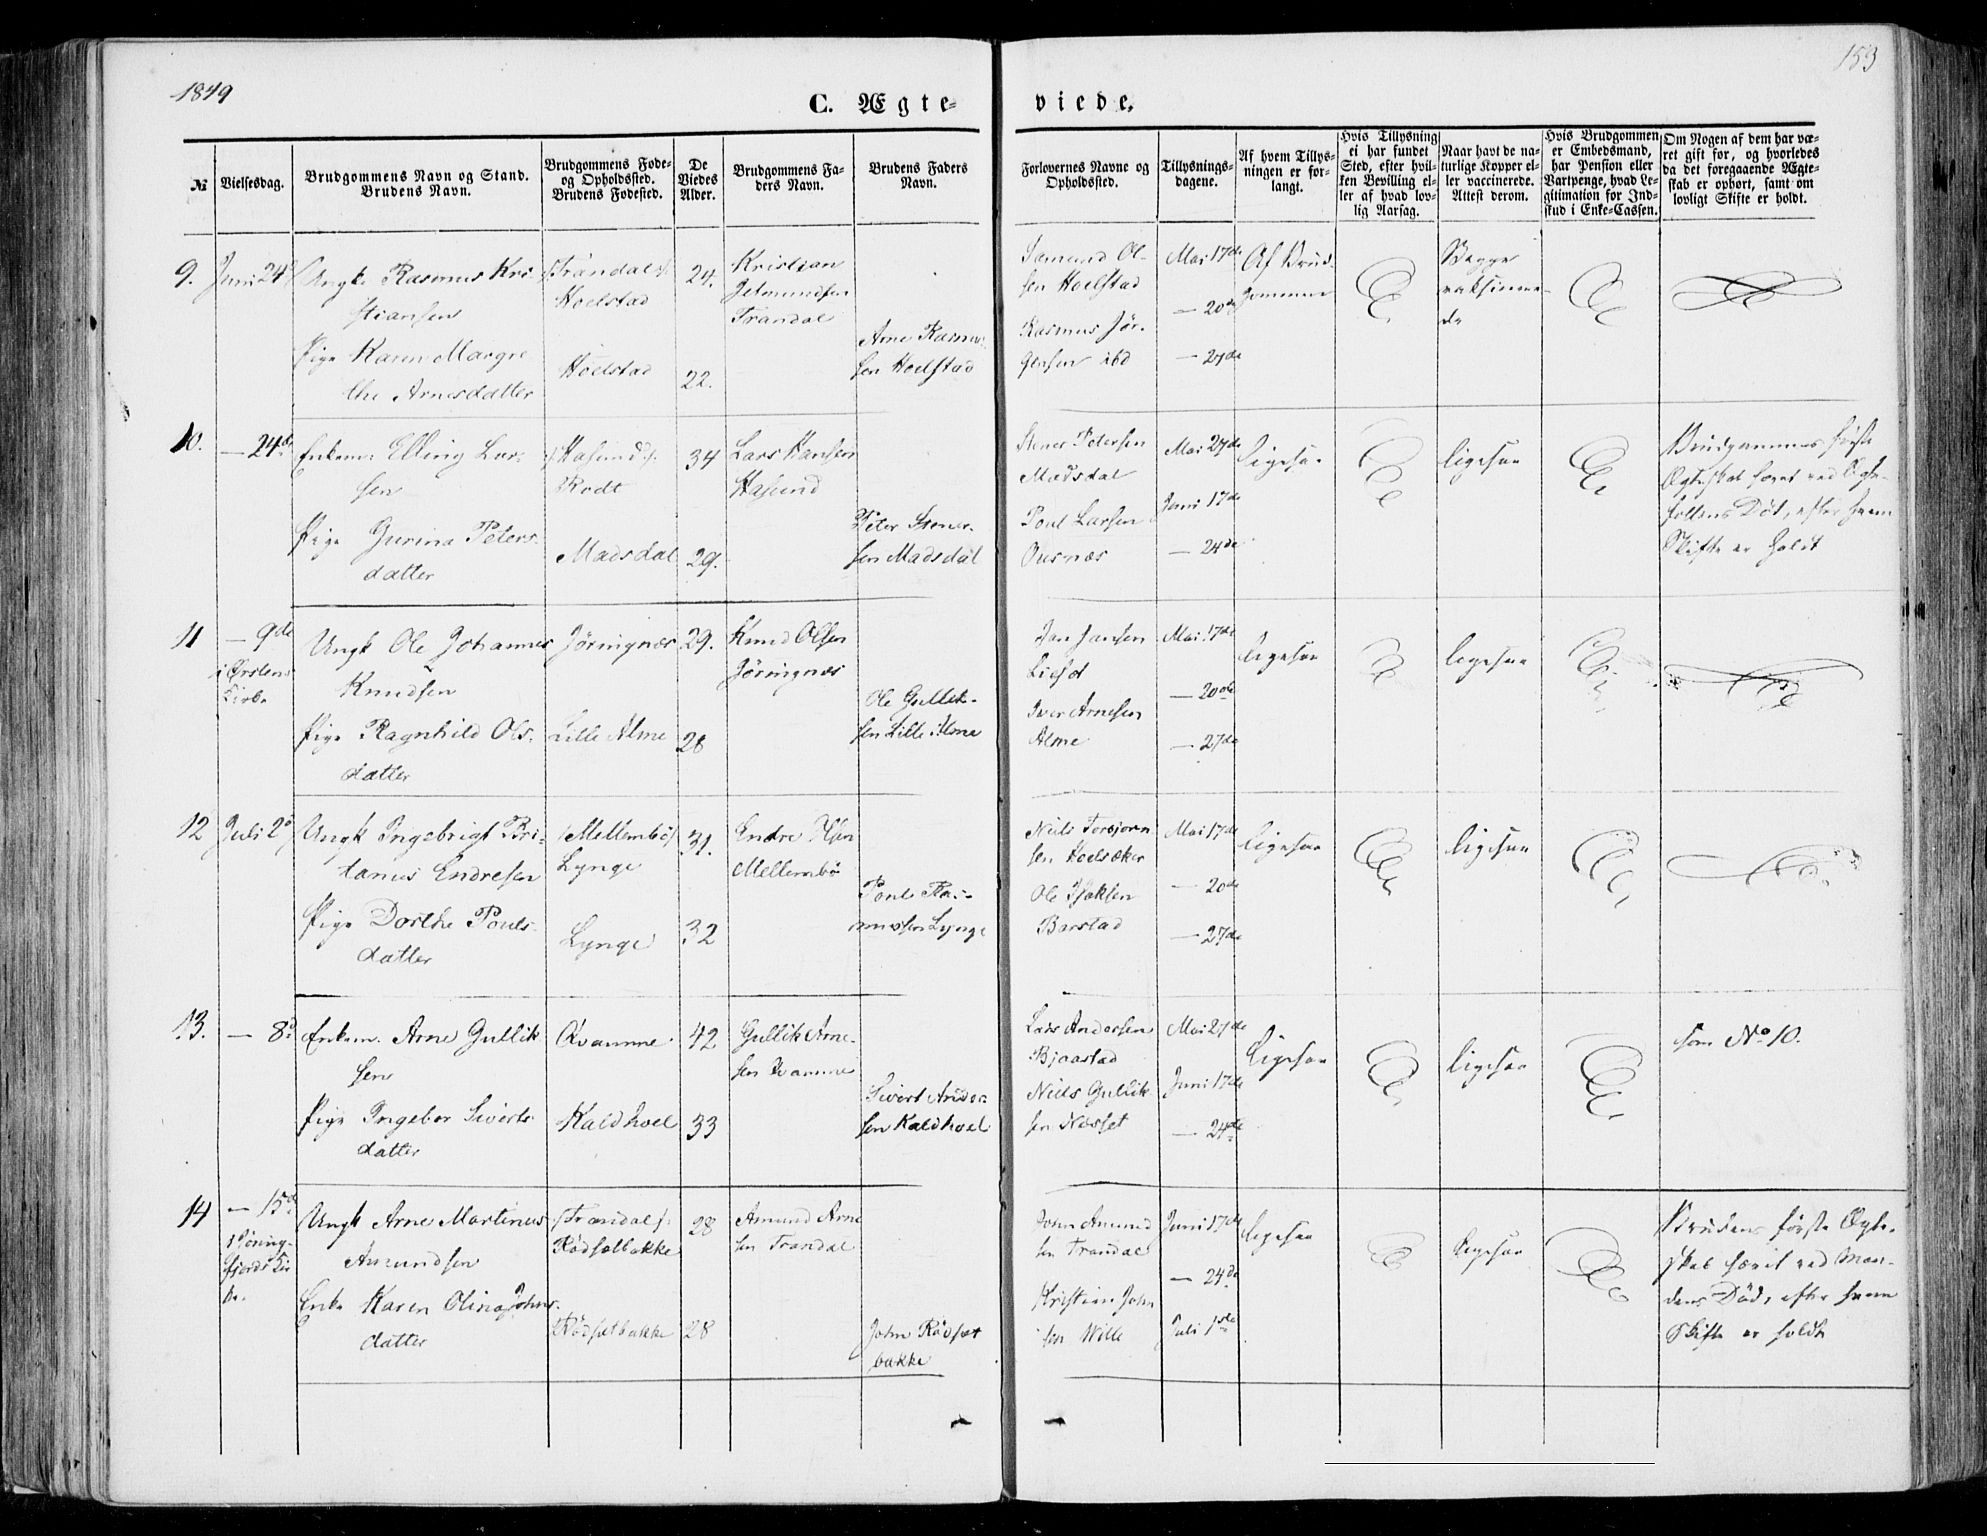 1849
153
C. Ægte-
viede.
№
Vielsesdag.
Brudgommens Navn og Stand.
Brudens Navn.
Brudgommens Føde-
og Opholdssted.
Brudens Fødested.
De
Viedes
Alder.
Brudgommens Fa-
ders Navn.
Brudens Faders
Navn.
Forlovernes Navne og
Opholdssted.
Tillysnings-
dagene.
Af hvem Tillys-
ningen er for-
langt.
Hvis Tillysning
ei har fundet
Sted, efter hvil-
ken Bevilling el-
ler af hvad lov-
lig Aarsag.
Naar havt de na-
turlige Kopper el-
ler vaccinerede.
Attest derom.
Hvis Brudgommen
er Embedsmand,
har Pension eller
Vartpenge, hvad Le-
gitimation for Ind-
skud i Enke-Cassen.
Om Nogen af dem har væ-
ret gift før, og hvorledes
da det foregaaende Ægte-
skab er ophørt, samt om
lovligt Skifte er holdt.
9.
Juni 24
Ungk Rasmus Kri-
stiansen
Pige Karen Margre
the Arnesdatter
/:Trandal:/
Hoelstad
Hoelstad
24.
22.
Kristian
Jetmundsen
Trandal
Arne Rasmu-
sen Hoelstad
Samund Ol-
sen Hoelstad
Rasmus Jør-
gensen ibd
Mai 17de
— 20de
— 27de
Af Brud-
gommen
Begge
vaksinere-
de
10.
— 24de
Enkem: Elling Lar-
sen
Pige Gurina Peters-
datter
/:Hasund:/
Rødt
Madsdal
34
29.
Lars Hansen
Hasund
Peter Stener-
sen Madsdal
Stener Petersen
Madsdal
Poul Larsen
Ousnæs
Mai 27de
Juni 17de
— 24de
ligesaa
ligesaa
Brudgommens første
Ægteskab hævet ved Ægte-
fellens Død, efter hvem
Skifte er holdt
11
— 9de
i Ørstens
Kirke
Ungk Ole Johannes
Knudsen
Pige Ragnhild Ols-
datter
Jøringnæs
Lille Alme
29.
28
Knud Olsen
Jøringnæs
Ole Gullik-
sen Lille Alme
Jan Jansen
Iver Arnesen
Alme
Mai 17de
— 20de
— 27de
ligesaa
ligesaa
12
Juli 2
Ungk Ingebrigt Bri-
tanus Endresen
Pige Dorthe Pouls-
datter
/Mellembø/
Lynge
Lynge
31.
32
Endre
Mellembø
Poul Ras-
mussen Lynge
Niels Torbjørn
sen Hoelsæker
Ole Isaksen
Barstad
Mai 17de
— 20de
— 27de
ligesaa
ligesaa
13.
— 8
Enkem. Arne Gullik
sen
Pige Ingebor Siverts
datter
Qvamme
Kaldhoel
42
33
Gullik Arne-
sen Kvamme
Sivert Ander-
sen Kaldhoel
Lars Andersen
Bjaastad
Niels Gullik
sen Næsset
Mai 27de
Juni 17de
— 24de
Ligesaa
ligesaa
som No 10.
14
— 15de
i Jøring-
fjords Kir
ke.
Ungk Arne Martinus
Amundsen
Enke Karen Olina Johns-
datter
/:Trandal/:
Rødsætbakke
Rødsætbakke
28
28
Amund Arne
sen Trandal
John Rødsæt
bakke
John Amund
sen Trandal
Kristian John
sen Wille
Juni 17de
— 24de
Juli 1ste
ligesaa
ligesaa
Brudens første Ægte-
skab hævet ved Man-
dens Død, efter hvem
Skifte er holdt